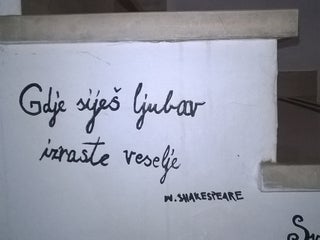 Gdje siješ ljubav
izraste veselje
W. SHAKESPEARE